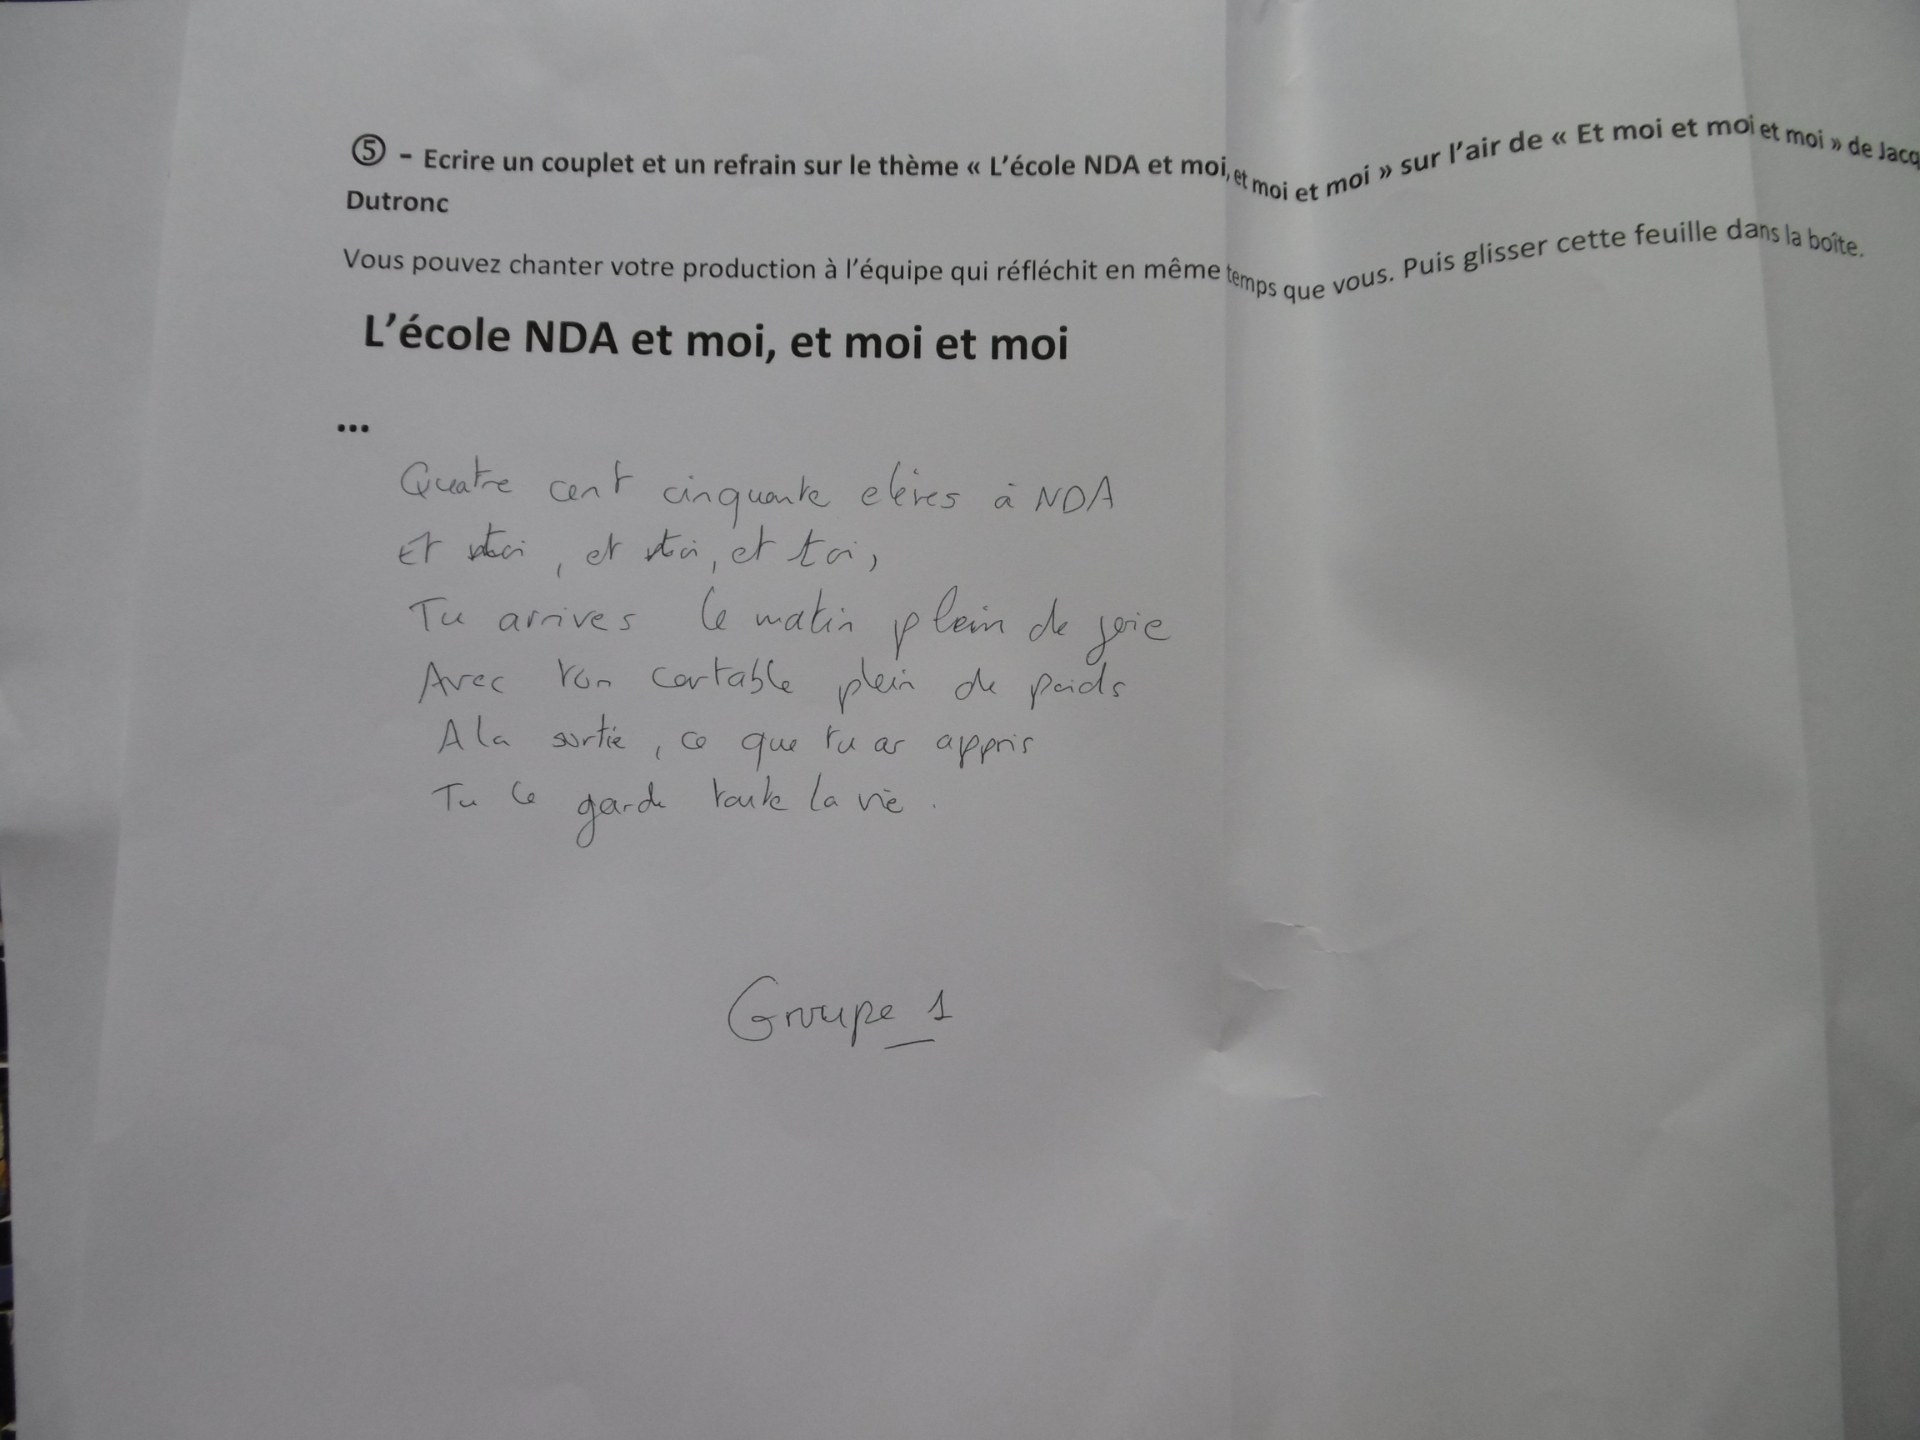 ⑤ - Ecrire un couplet et un refrain sur le thème « L'école NDA et moi, et moi et moi » sur l'air de « Et moi et moi et moi » de Jacq
Dutronc
Vous pouvez chanter votre production à l'équipe qui réfléchit en même temps que vous. Puis glisser cette feuille dans la boîte.
L'école NDA et moi, et moi et moi
...
Quatre cent cinquante elèves à NDA
Et toi, et toi, et toi,
Tu arrives le matin plein de joie
Avec ton cartable plein de poids
A la sortie, ce que tu as appris
Tu le garde toute la vie.
Groupe 1